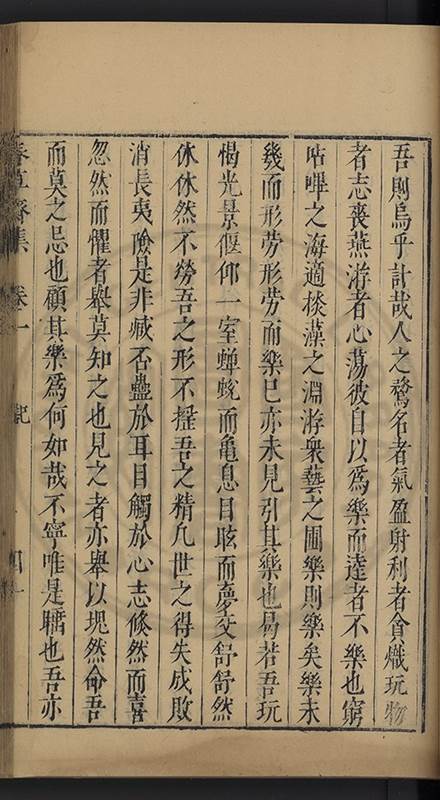 吾則烏乎計哉人之騖名者氣盈射利者貪熾玩物
者志喪燕游者心蕩彼自以爲樂而達者不樂也窮
呫嗶之海適棪藻之淵游衆藝之圃樂則樂矣樂未
幾而形勞形勞而樂已亦未見引其樂也曷若吾玩
愒光景偃仰一室蟬蛻而龜息目眩而夢交舒舒然
休休然不勞吾之形不摇吾之精凡世之得失成敗
消長夷險是非臧否蠱於耳目觸於心志倏然而喜
忽然而懼者舉莫知之也見之者亦舉以塊然命吾
而莫之忌也顧其樂爲何如哉不寧唯是臞也吾亦
春草齋集 卷一 記